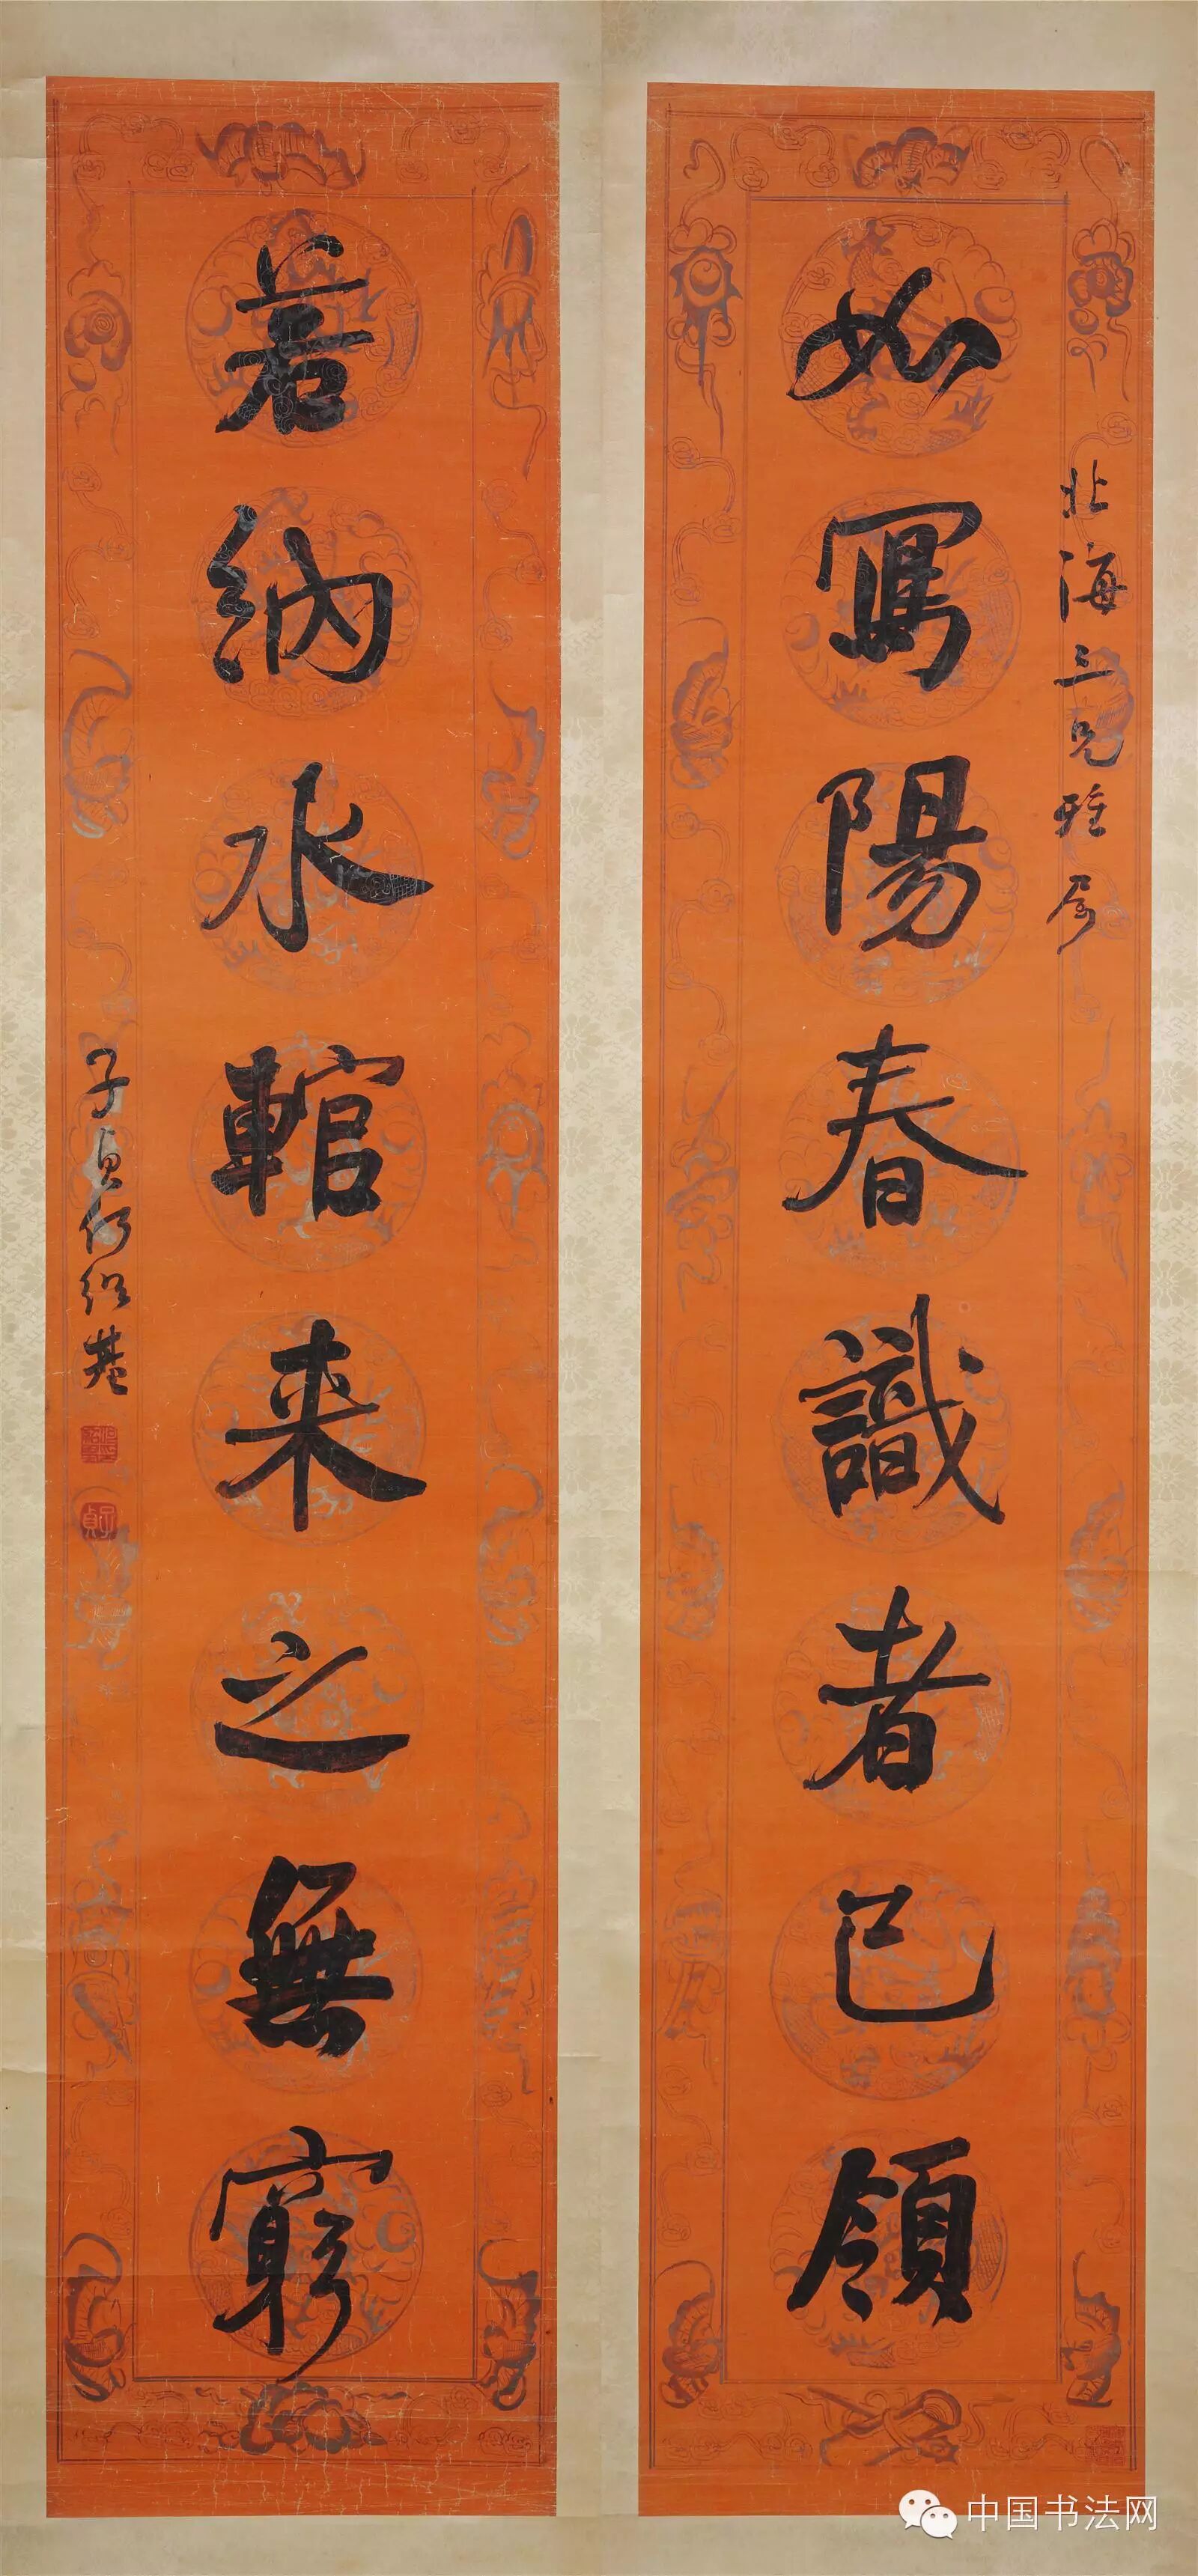 如寫陽春識者已領
北海三兄雅屬
若納水輨來之無窮
子貞何紹基
子貞
中国书法网